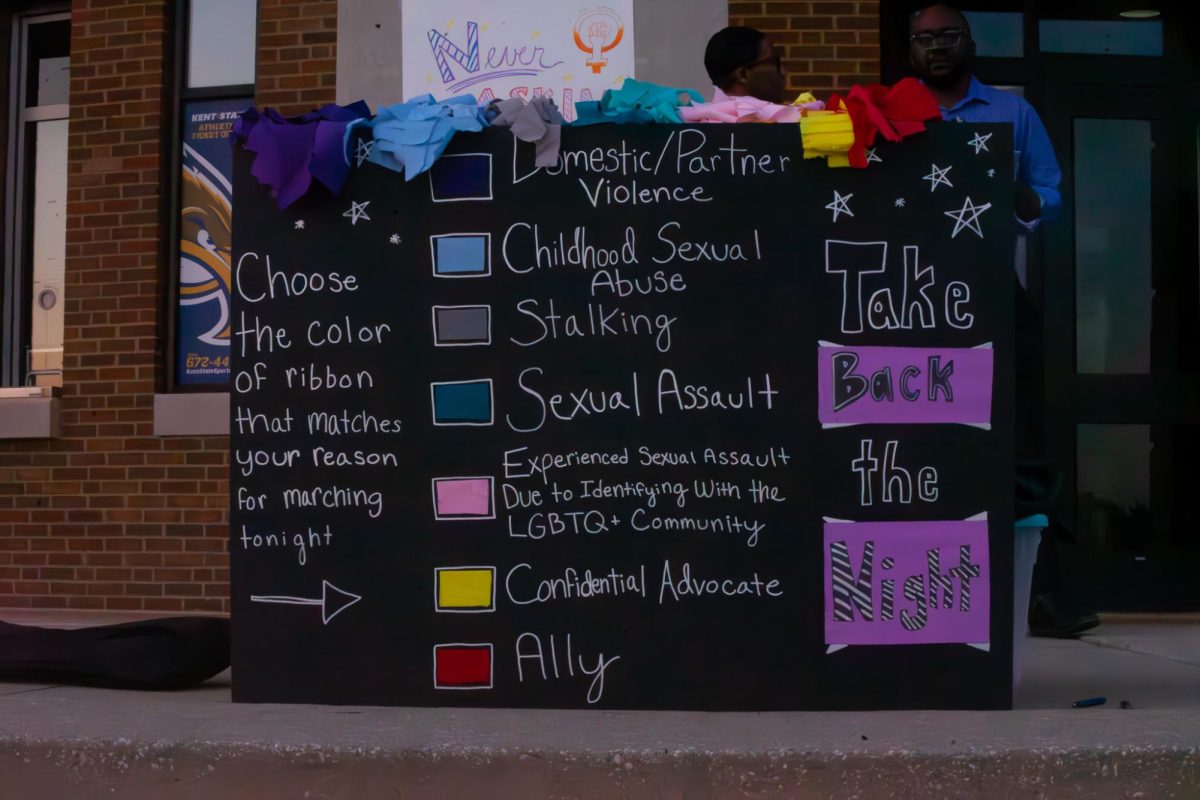 Never
ASKIN
KENT STAT
ATHLET
TICKET O
672-44
KentStateSport
Choose
the color
of ribbon
that matches
your reason
for marching
tonight
Domestic/Partner
Violence
Childhood Sexual
Abuse
Stalking
Sexual Assault
Experienced Sexual Assault
Due to Identifying With the
LGBTQ+ Community
Confidential Advocate
Ally
Take
Back
the
Night